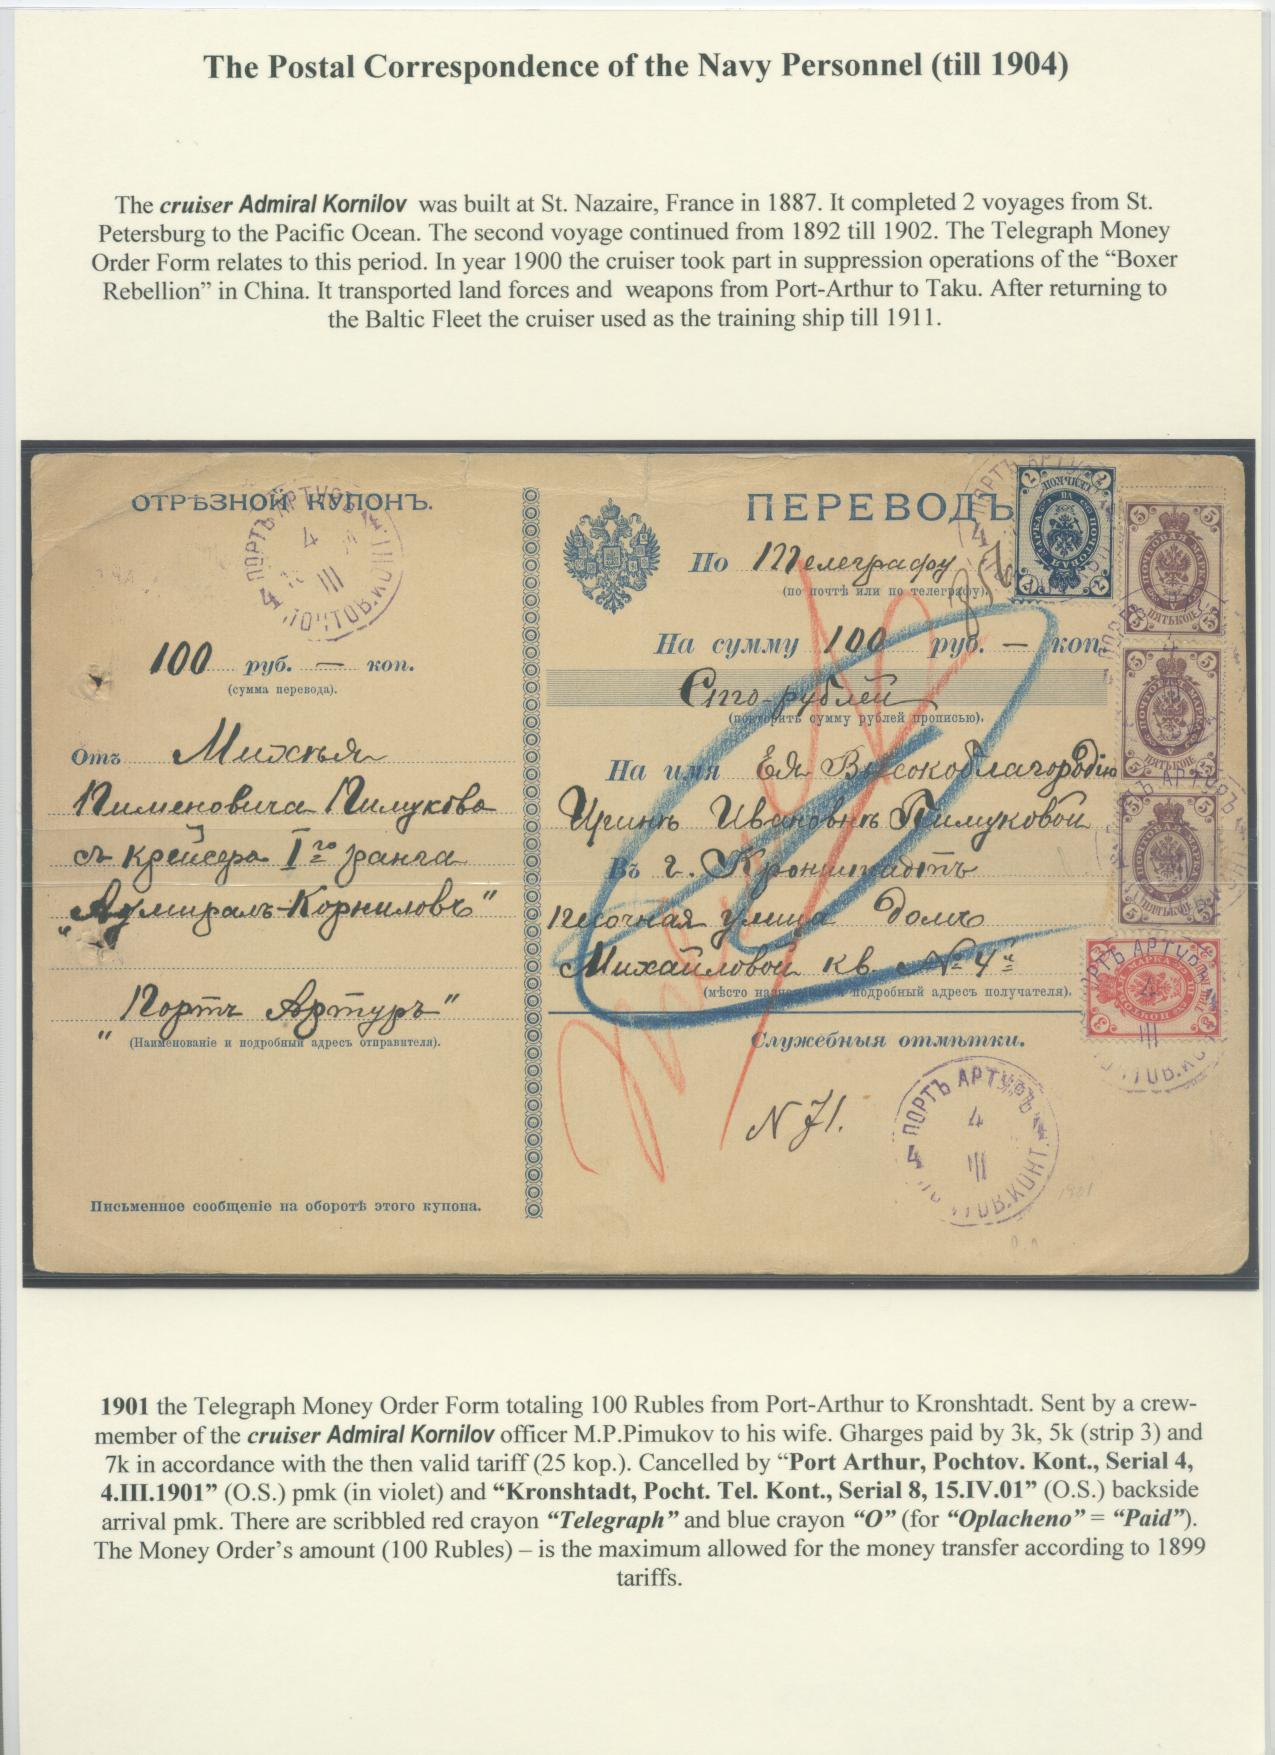 The Postal Correspondence of the Navy Personnel (till 1904)
The cruiser Admiral Kornilov was built at St. Nazaire, France in 1887. It completed 2 voyages from St.
Petersburg to the Pacific Ocean. The second voyage continued from 1892 till 1902. The Telegraph Money
Order Form relates to this period. In year 1900 the cruiser took part in suppression operations of the “Boxer
Rebellion” in China. It transported land forces and weapons from Port-Arthur to Taku. After returning to
the Baltic Fleet the cruiser used as the training ship till 1911.
ОТРѢЗНОЙ КУПОНЪ.
ПОРТЪ АРТУРЪ
4
III
4 ПОЧТОВ.КОНТ. 4
100 руб. — коп.
(сумма перевода).
Отъ
Пименовича Пимукова
съ крейсера Iго ранга
„Адмиралъ-Корниловъ“
„Портъ Артуръ“
(Наименованіе и подробный адресъ отправителя).
Письменное сообщеніе на оборотѣ этого купона.
ПЕРЕВОДЪ
По Телеграфу
(по почтѣ или по телеграфу).
На сумму 100 руб. — коп.
Сто рублей
(повторить сумму рублей прописью).
На имя Ея Высокоблагородію
Иринѣ Ивановнѣ Пимуковой
Въ г. Кронштадтъ
песочная улица домъ
Михайловой кв. № 4й
(мѣсто назначенія и подробный адресъ получателя).
Служебныя отмѣтки.
N 71.
ПОРТЪ АРТУРЪ
4
III
4 ПОЧТОВ.КОНТ. 4
1901
1901 the Telegraph Money Order Form totaling 100 Rubles from Port-Arthur to Kronshtadt. Sent by a crew-
member of the cruiser Admiral Kornilov officer M.P.Pimukov to his wife. Gharges paid by 3k, 5k (strip 3) and
7k in accordance with the then valid tariff (25 kop.). Cancelled by “Port Arthur, Pochtov. Kont., Serial 4,
4.III.1901” (O.S.) pmk (in violet) and “Kronshtadt, Pocht. Tel. Kont., Serial 8, 15.IV.01” (O.S.) backside
arrival pmk. There are scribbled red crayon “Telegraph” and blue crayon “O” (for “Oplacheno” = “Paid”).
The Money Order’s amount (100 Rubles) – is the maximum allowed for the money transfer according to 1899
tariffs.